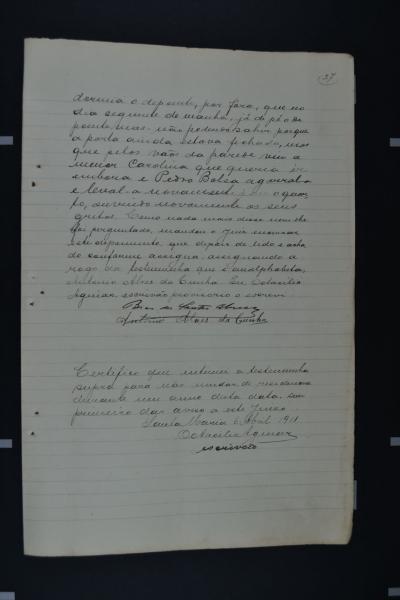 37
dormia o depoente, por fora, que no
dia seguinte de manhã, já de pé o de
poente, mas não podendo sahir porque
a porta ainda estava fechada, viu
que pelos vãos da parede viu a
menor Carolina que queria ir
embora e Pedro Bolsa agarral-a
e leval-a novamente para o quar
to, ouvindo novamente os seus
gritos. Como nada mais disse nem lhe
foi perguntado, mandou o Juiz encerrar
este depoimento, que depois de lido e acha
do conforme assigna, assignando a
rogo da testemunha que é analphabeta,
Antonio Alves da Cunha. Eu
Aguiar, escrivão provisorio o escrevi
Antonio Alves da Cunha
Certifico que intimei a testemunha
supra para não mudar de residencia
durante um anno desta data, sem
primeiro dar aviso a este Juizo.
Santa Maria 6 Abril 1911
Aguiar
escrivão